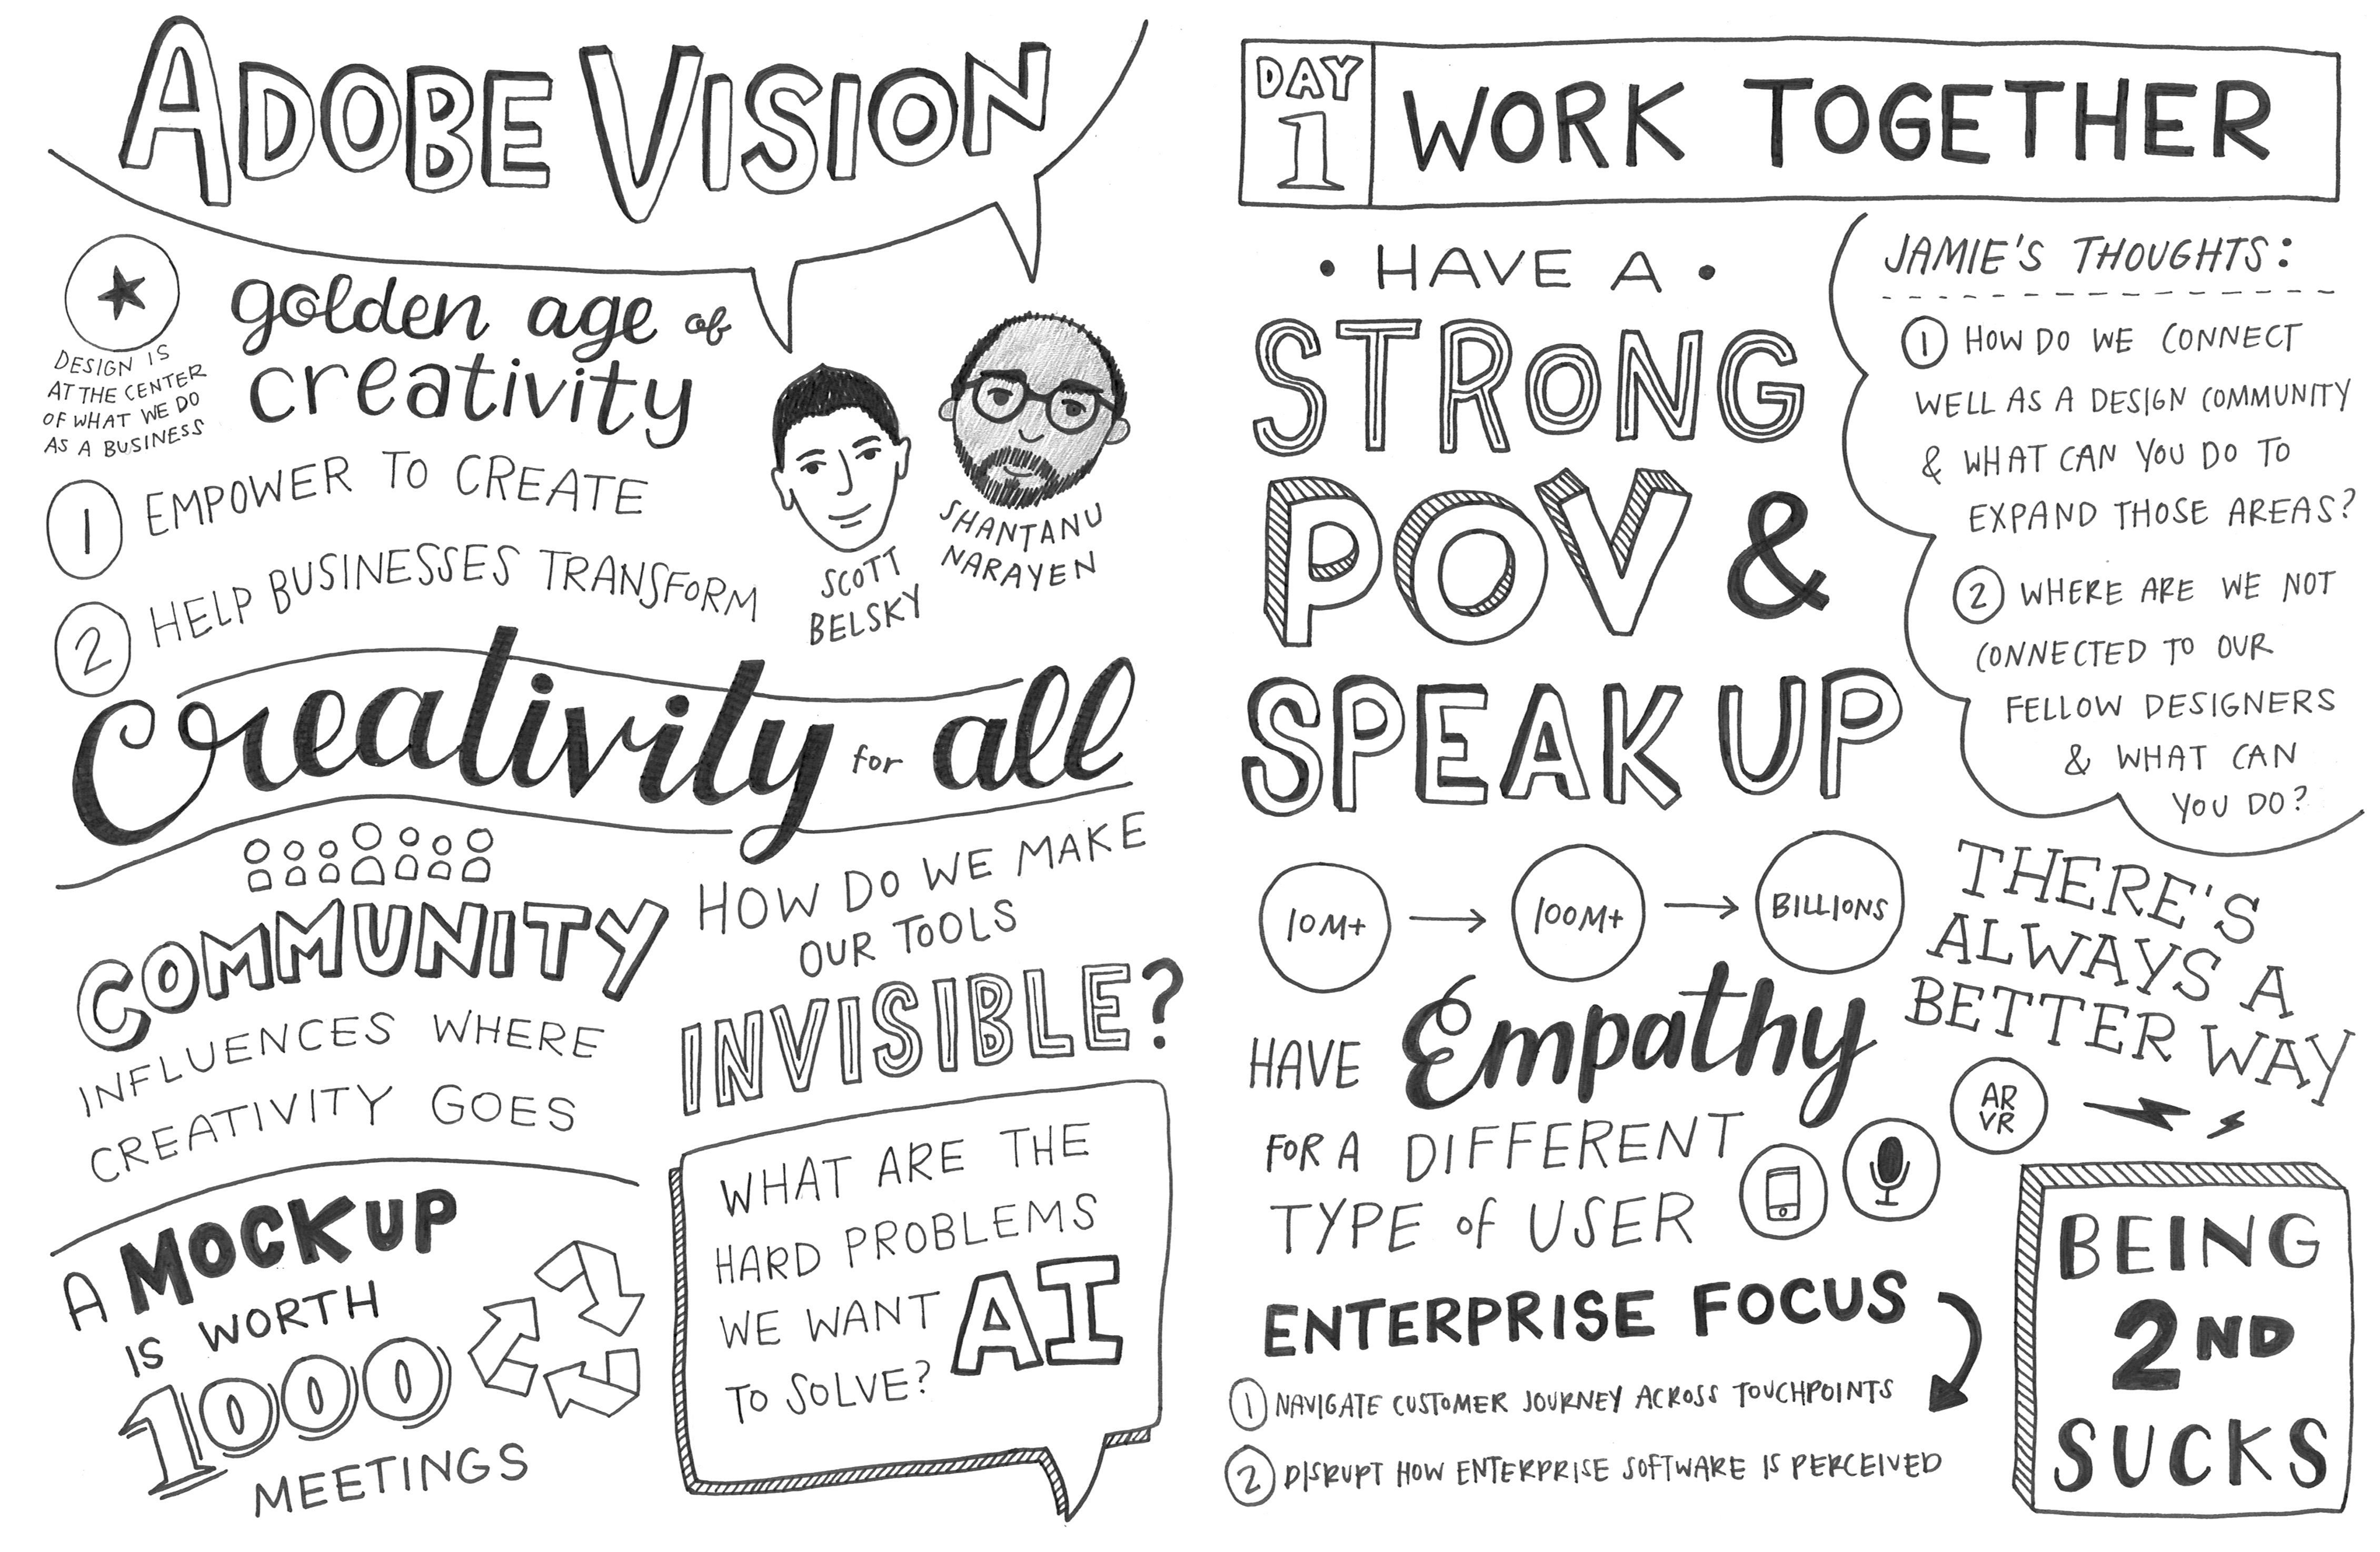 ADOBE VISION
DESIGN IS
AT THE CENTER
OF WHAT WE DO
AS A BUSINESS
golden age of
creativity
1 EMPOWER TO CREATE
2 HELP BUSINESSES TRANSFORM
SCOTT
BELSKY
SHANTANU
NARAYEN
Creativity for all
COMMUNITY
INFLUENCES WHERE
CREATIVITY GOES
HOW DO WE MAKE
OUR TOOLS
INVISIBLE?
A MOCKUP
IS WORTH
1000
MEETINGS
WHAT ARE THE
HARD PROBLEMS
WE WANT AI
TO SOLVE?
DAY
1
WORK TOGETHER
• HAVE A •
STRONG
POV &
SPEAK UP
JAMIE'S THOUGHTS:
1 HOW DO WE CONNECT
WELL AS A DESIGN COMMUNITY
& WHAT CAN YOU DO TO
EXPAND THOSE AREAS?
2 WHERE ARE WE NOT
CONNECTED TO OUR
FELLOW DESIGNERS
& WHAT CAN
YOU DO?
10M+ → 100M+ → BILLIONS
THERE'S
ALWAYS A
BETTER WAY
HAVE Empathy
FOR A DIFFERENT
TYPE of USER
AR
VR
ENTERPRISE FOCUS
1 NAVIGATE CUSTOMER JOURNEY ACROSS TOUCHPOINTS
2 DISRUPT HOW ENTERPRISE SOFTWARE IS PERCEIVED
BEING
2ND
SUCKS